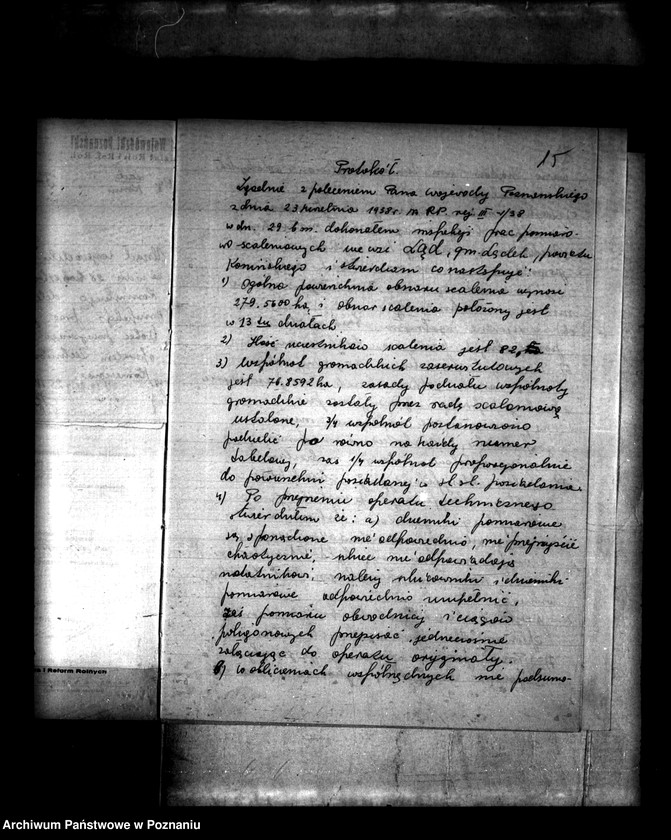 15
Protokół.
Zgodnie z poleceniem Pana Wojewody Poznańskiego
z dnia 23 kwietnia 1938 r. N R.P. rej III-1/38
w dn. 29 b.m. dokonałem inspekcji prac pomiaro-
wo scaleniowych we wsi Ląd, gm. Lądek, powiatu
Konińskiego i stwierdzam co następuje:
1) Ogólna powierzchnia obszaru scalenia wynosi
279.5600 ha i obszar scalenia położony jest
w 13tu działach.
2) Ilość uczestników scalenia jest 82,
3) wspólnot gromadzkich zaserwitutowych
jest 76.8592 ha, zasady podziału wspólnoty
gromadzkie zostały przez radę scaleniową
ustalone, 3/4 wspólnot postanowiono
podzielić po równo na każdy numer
tabelowy, zaś 1/4 wspólnot proporcjonalnie
do powierzchni posiadanej w st. posiadania.
4) Po przejrzeniu operatu technicznego
stwierdziłem że: a) dzienniki pomiarowe
są sporządzone nieodpowiednio, nieprzejrzyście
chaotycznie, szkice nie odpowiadają
notatnikowi, należy szkicowniki i dzienniki
pomiarowe odpowiednio uzupełnić,
zaś pomiaru obwodnicy i ciągów
poligonowych przepisać jednocześnie
załączając do operatu oryginały.
b) w obliczeniach współrzędnych nie podsumo-
i Reform Rolnych
Archiwum Państwowe w Poznaniu